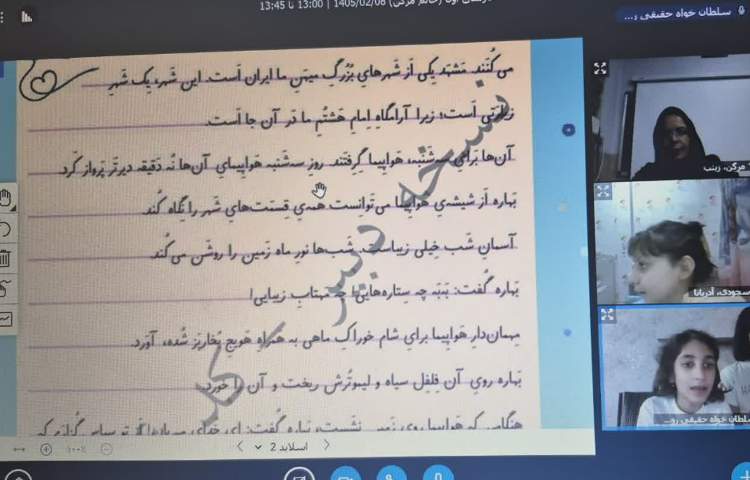 13:45 تا 13:00 | 1405/02/08
سلطان خواه حقیقی ...
می کُنَند. مَشهَد یِکی اَز شَهرهایِ بُزُرگِ میهَنِ ما ایران اَست. این شَهر، یِک شَهرِ
زیارَتی اَست؛ زیرا آرامگاهِ اِمامِ هَشتُمِ ما دَر آن جا اَست.
آن‌ها بَرایِ سه‌شَنبه، هَواپیما گِرِفتَند. روزِ سه‌شَنبه هَواپیمایِ آن‌ها نُه دَقیقه دیرتَر پَرواز کَرد.
بَهاره اَز شیشه‌یِ هَواپیما می‌تَوانِست هَمه‌یِ قِسمَت‌هایِ شَهر را نِگاه کُنَد.
آسمانِ شَب خِیلی زیباست. شَب‌ها نورِ ماه زَمین را روشَن می‌کُنَد.
بَهاره گُفت: بَه‌بَه چه ستاره‌هایی! چه مَهتابِ زیبایی!
مِهمان‌دارِ هَواپیما بَرایِ شام خوراکِ ماهی به هَمراهِ هَویجِ بُخارپَز شُده، آوَرد.
بَهاره رویِ آن فِلفِلِ سیاه و لیموتُرش ریخت و آن را خورد.
هِنگامی که هَواپیما روی زَمین نِشَست، بَهاره گُفت: اِی خُدایِ
نسخه دبیر کار
مژگن، زینب
سجودی، آدرینا
سلطان خواه حقیقی رو...
اسلاید 2